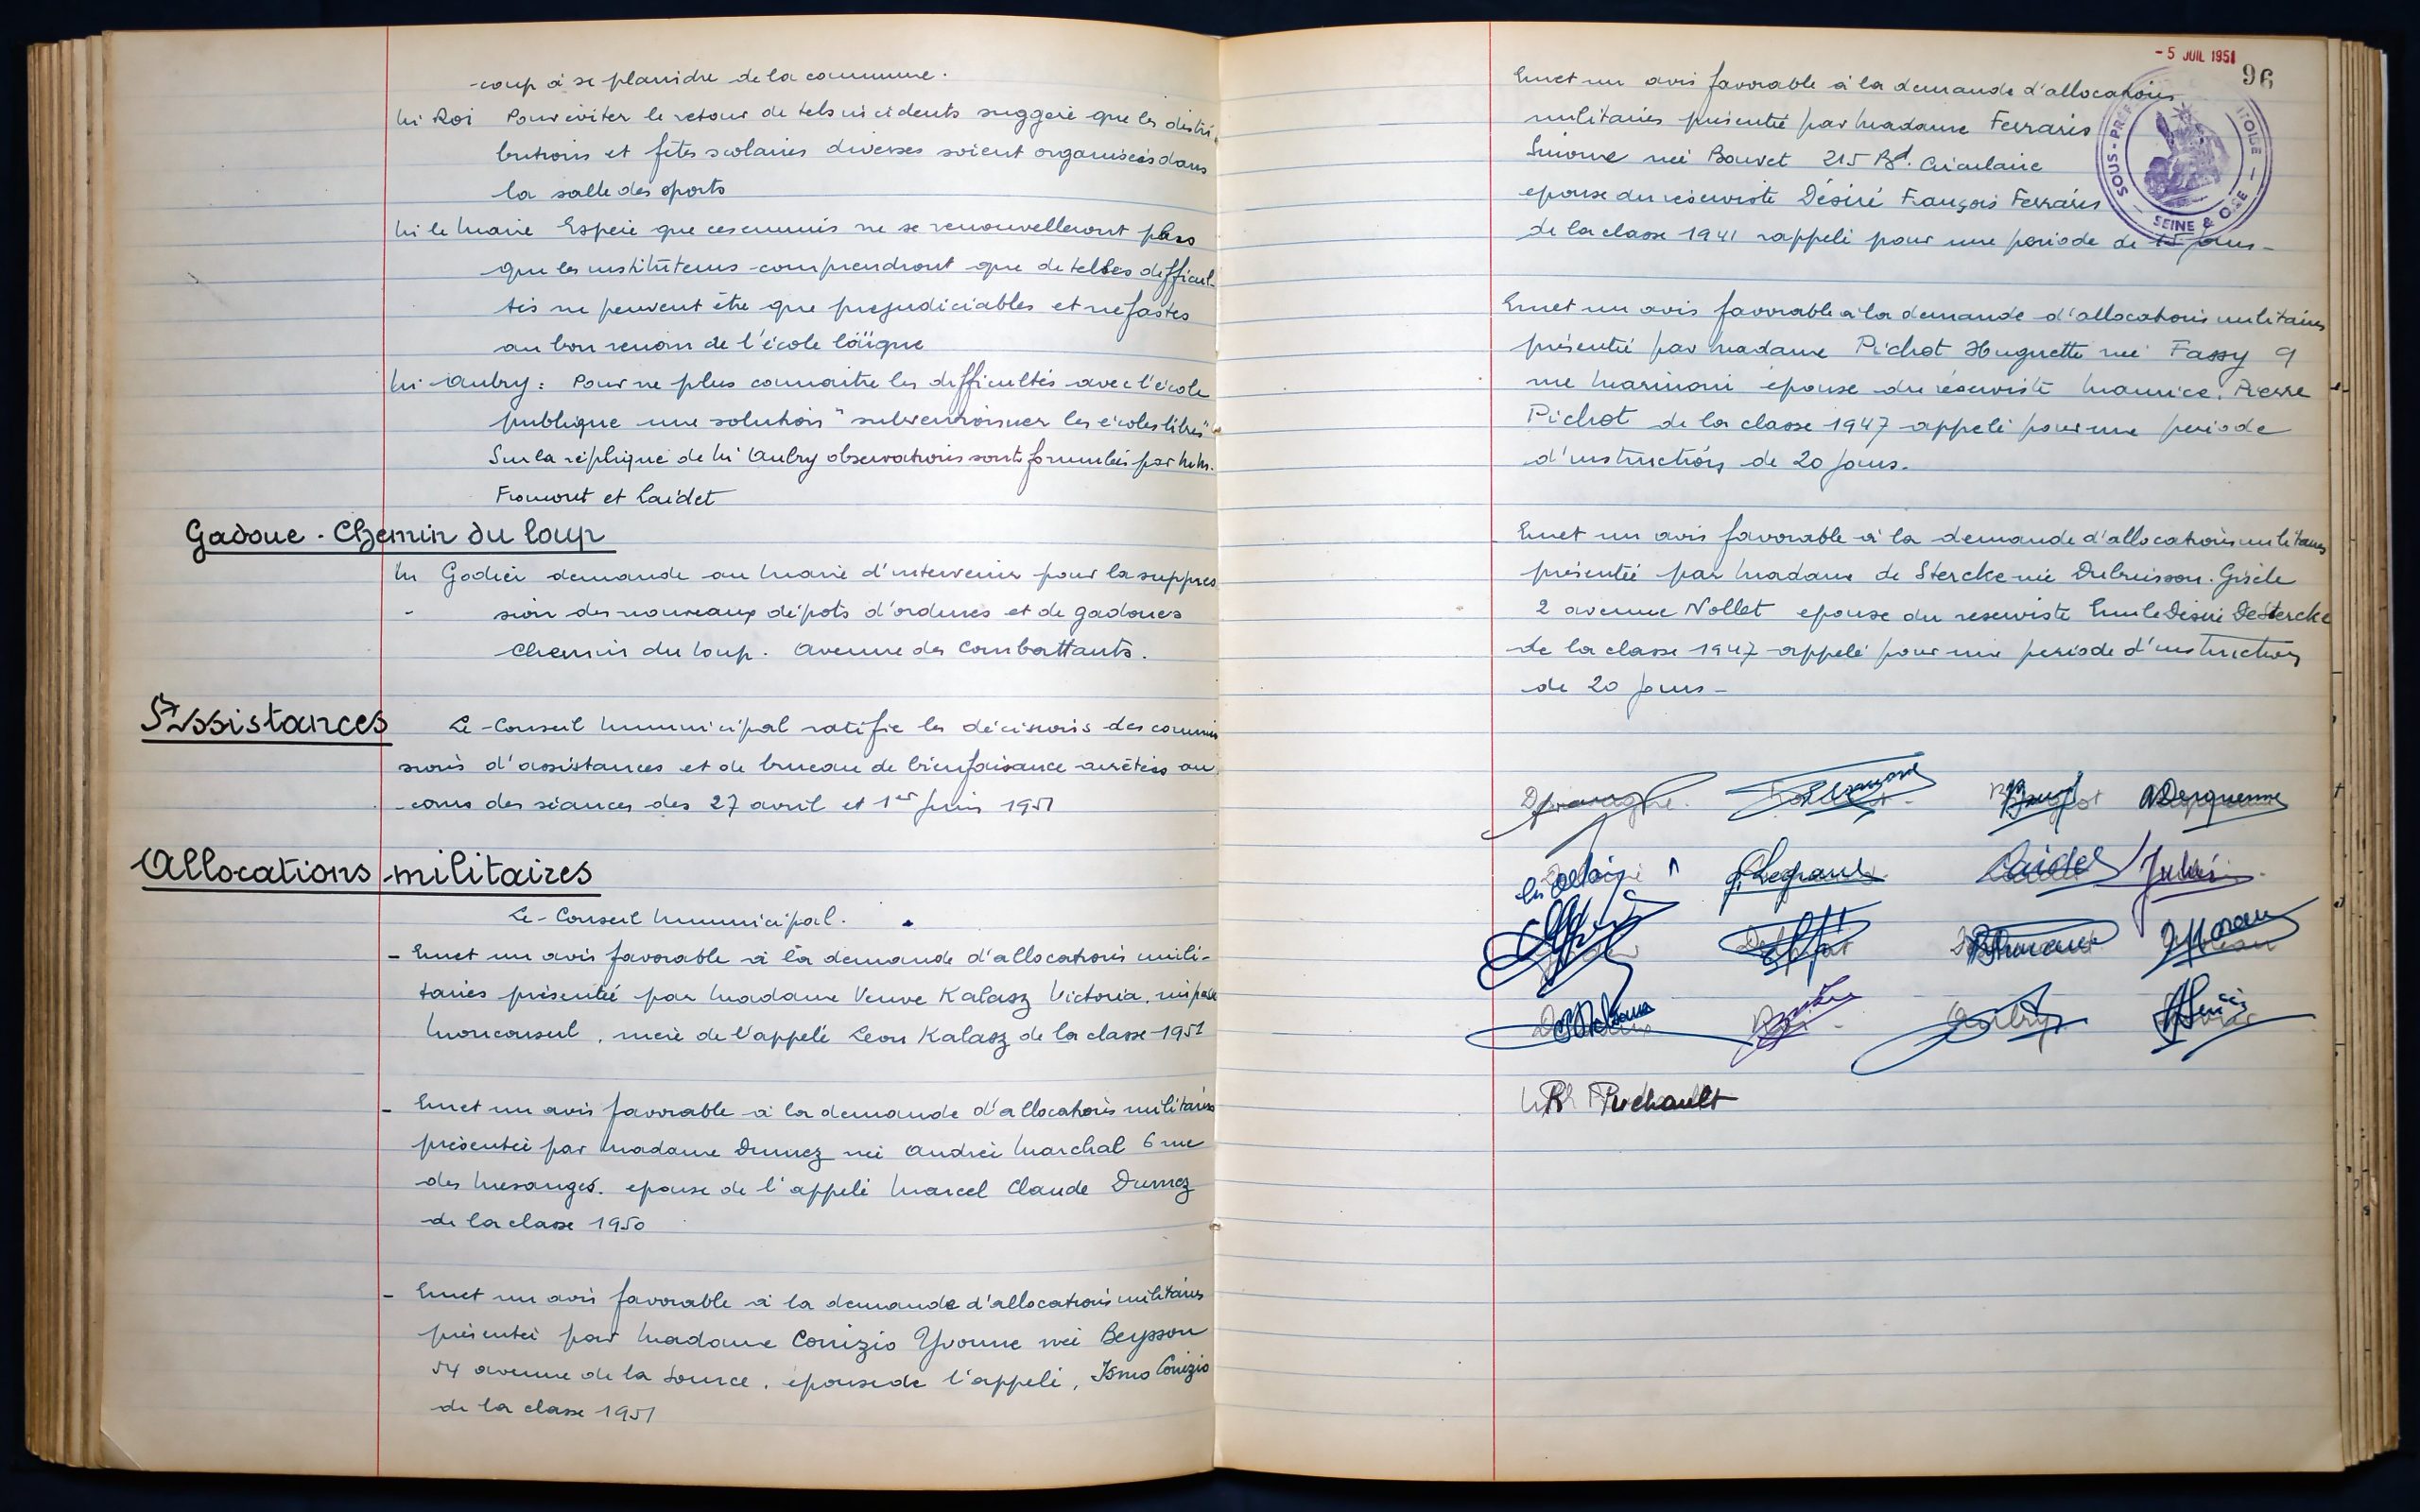 -coup à se plaindre de la commune.
Mr Roi Pour éviter le retour de tels incidents suggère que les distri-
butions et fêtes scolaires diverses soient organisées dans
la salle des sports
Mr le Maire Espère que ces ennuis ne se renouvelleront plus
que les instituteurs comprendront que de telles difficul-
tés ne peuvent être que prejudiciables et néfastes
au bon renom de l'école laïque
Mr Aubry : Pour ne plus connaitre les difficultés avec l'école
publique une solution "subventionner les écoles libres"
Sur la réplique de Mr Aubry observations sont formulées par MM.
Fromont et Laidet
Gadoue - Chemin du Loup
Mr Godier demande au Maire d'intervenir pour la suppres
sion des nouveaux dépots d'ordures et de gadoues
Chemin du Loup. Avenue des Combattants.
Assistances
Le Conseil Municipal ratifie les décisions des commis
sions d'assistances et de bureau de bienfaisance arrêtées au
cours des séances des 27 avril et 1er Juin 1951
Allocations militaires
Le Conseil Municipal.
- Emet un avis favorable à la demande d'allocations mili-
taires présentée par Madame Veuve Kalasz Victoria, impasse
Monconseil, mère de l'appelé Leon Kalasz de la classe 1951
- Emet un avis favorable à la demande d'allocations militaires
présentée par Madame Dumez née Andrée Marchal 6 rue
des Mesanges. epouse de l'appelé Marcel Claude Dumez
de la classe 1950
- Emet un avis favorable à la demande d'allocations militaires
présentée par Madame Conizio Yvonne née Beysson
54 avenue de la Source, épouse de l'appelé, Ismo Conizio
de la classe 1951
- 5 JUIL 1951
96
SOUS-PRÉF
SEINE & OISE
Emet un avis favorable à la demande d'allocations
militaires présentée par Madame Ferraris
Simone née Bouvet 215 Bd. Circulaire
epouse du réserviste Désiré François Ferraris
de la classe 1941 rappelé pour une période de 15 jours -
Emet un avis favorable à la demande d'allocations militaires
présentée par Madame Pichot Huguette née Fassy 9
rue Marinoni épouse du réserviste Maurice. Pierre
Pichot de la classe 1947 appelé pour une periode
d'instruction de 20 jours.
Emet un avis favorable à la demande d'allocations militaires
présentée par Madame de Stercke née Dubuisson. Gisèle
2 avenue Nollet epouse du reserviste Emile Désiré DeStercke
de la classe 1947 appelé pour une periode d'instruction
de 20 jours -
Derquenne
Legrand Laidet Julien
Fromont Moreau
Roi Aubry
Ruchault